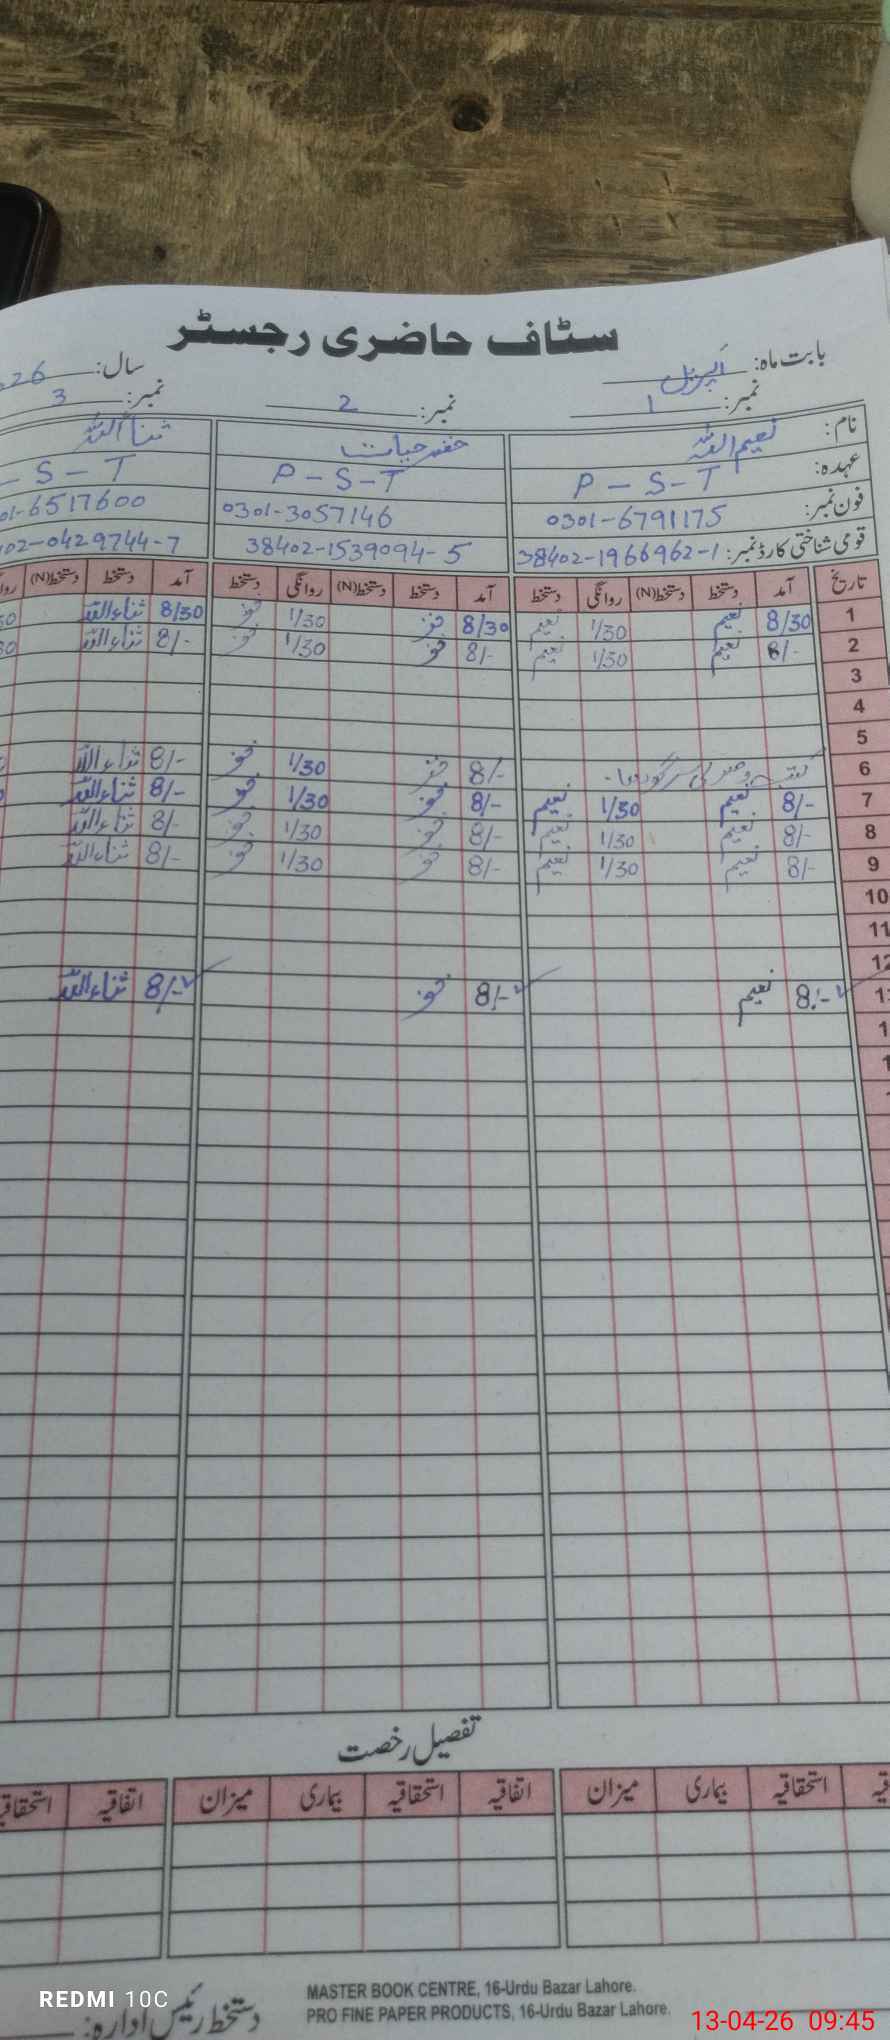 سٹاف حاضری رجسٹر
بابت ماہ: اپریل سال: 26
نمبر: 1 نمبر: 2 نمبر: 3
نام: نعیم اللہ حیات ثناء اللہ
عہدہ: P-S-T P-S-T -S-T
فون نمبر: 0301-6791175 0301-3057146 01-6517600
قومی شناختی کارڈ نمبر: 38402-1966962-1 38402-1539094-5 402-0429744-7
تاریخ آمد دستخط دستخط(N) روانگی دستخط آمد دستخط دستخط(N) روانگی دستخط آمد دستخط دستخط(N)
1 8/30 نعیم 1/30 نعیم 8/30 1/30 8/30 ثناء اللہ
2 8/- نعیم 1/30 نعیم 8/- 1/30 8/- ثناء اللہ
3
4
5
6 8/- 1/30 8/- ثناء اللہ
7 8/- نعیم 1/30 نعیم 8/- 1/30 8/- ثناء اللہ
8 8/- نعیم 1/30 نعیم 8/- 1/30 8/- ثناء اللہ
9 8/- نعیم 1/30 نعیم 8/- 1/30 8/- ثناء اللہ
10
11
12
8/- نعیم 8/- 8/- ثناء اللہ
تفصیل رخصت
استحقاقیہ بیماری میزان اتفاقیہ استحقاقیہ بیماری میزان اتفاقیہ
دستخط رئیس ادارہ:
MASTER BOOK CENTRE, 16-Urdu Bazar Lahore.
PRO FINE PAPER PRODUCTS, 16-Urdu Bazar Lahore.
REDMI 10C
13-04-26 09:45